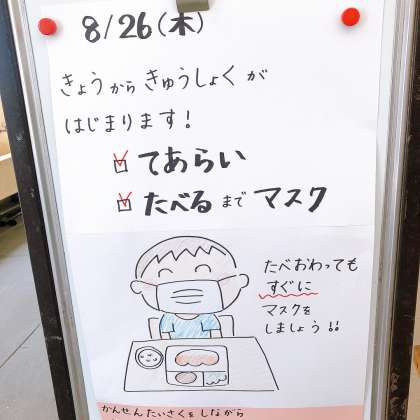 8/26(木)
きょうからきゅうしょくが
はじまります!
☑ てあらい
☑ たべるまでマスク
たべおわっても
すぐに
マスクを
しましょう!!
かんせんたいさくをしながら